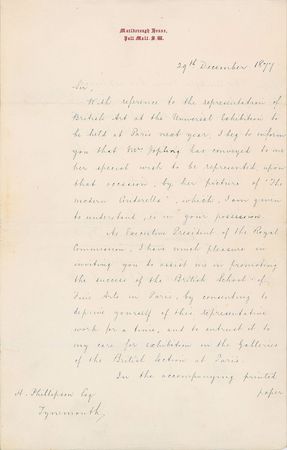 Marlborough House,
Pall Mall. S.W.
29th December 1877
Sir,
With reference to the representation of
British Art at the Universal Exhibition to
be held at Paris next year, I beg to inform
you that Mrs Jopling has conveyed to me
her special wish to be represented upon
that occasion, by her picture of "The
modern Cinderella", which, I am given
to understand, is in your possession.
As Executive President of the Royal
Commission, I have much pleasure in
inviting you to assist me in promoting
the success of the British School of
Fine Arts in Paris, by consenting to
deprive yourself of this representative
work for a time, and to entrust it to
my care for exhibition in the Galleries
of the British Section at Paris.
In the accompanying printed
paper
A. Phillipson Esq
Tynemouth,